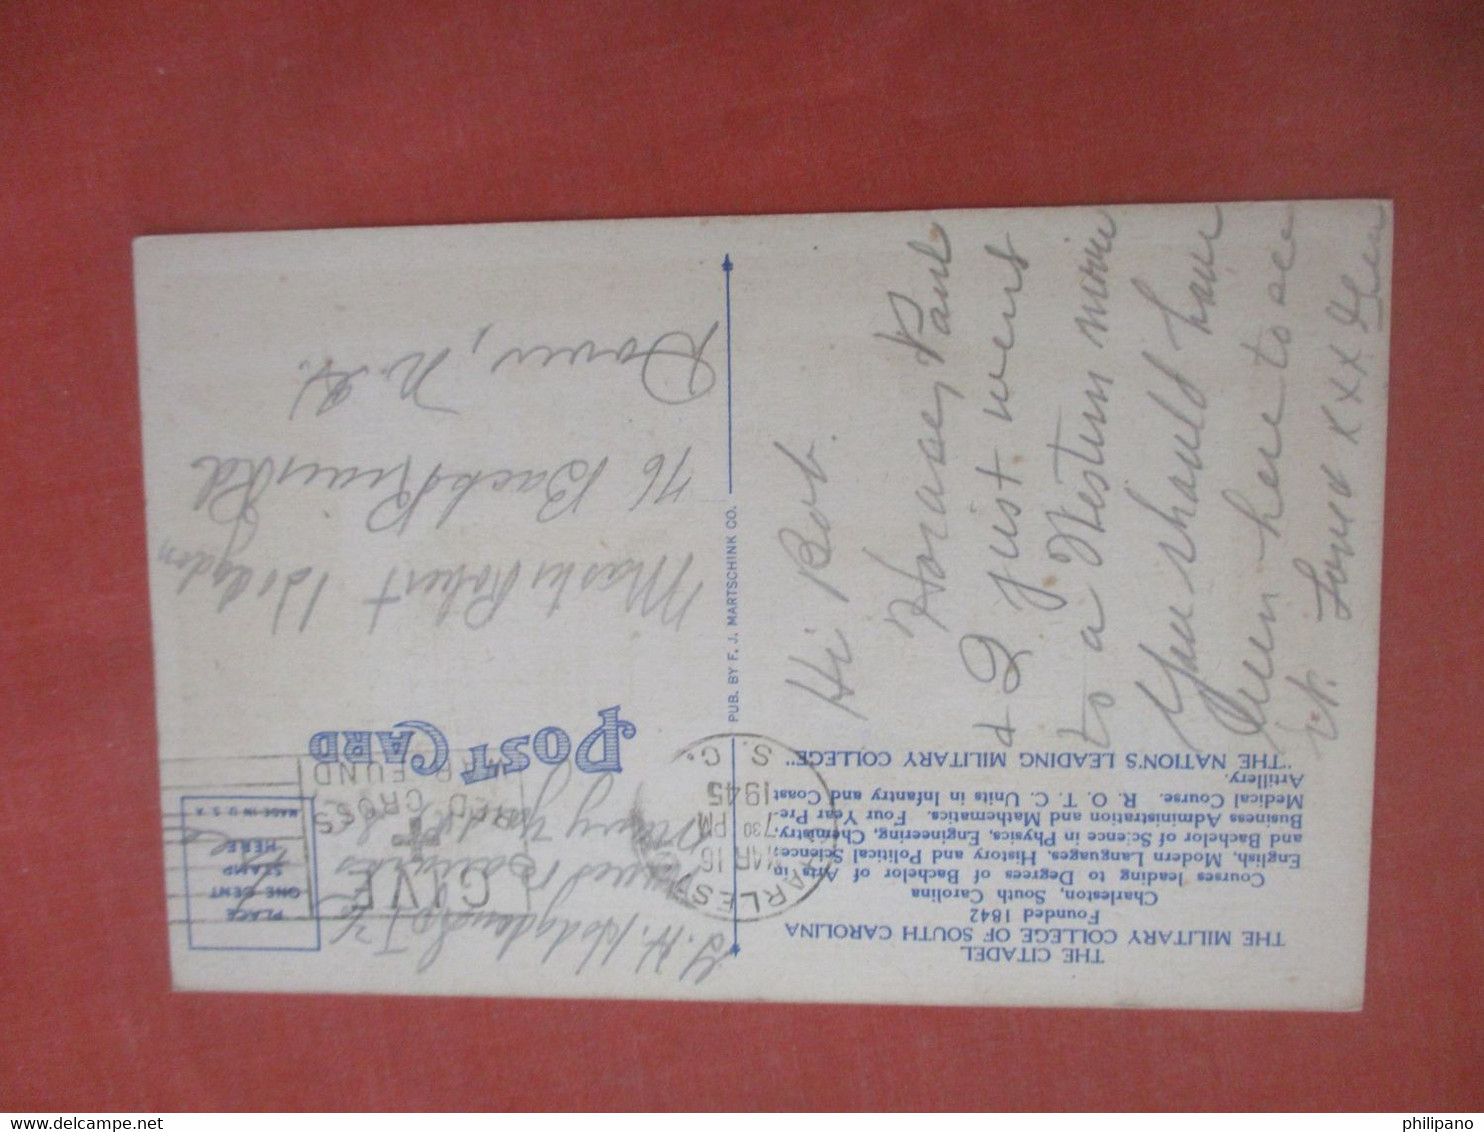 THE CITADEL
THE MILITARY COLLEGE OF SOUTH CAROLINA
Founded 1842
Charleston, South Carolina
Courses leading to Degrees of Bachelor of Arts in
English, Modern Languages, History and Political Science;
and Bachelor of Science in Physics, Engineering, Chemistry,
Business Administration and Mathematics. Four Year Pre-
Medical Course. R. O. T. C. Units in Infantry and Coast
Artillery.
"THE NATION'S LEADING MILITARY COLLEGE"
Hi Bob.
Horase, Paul
& I just went
to a Western movie
You should have
been here to see
it. Love x x x
PUB. BY F. J. MARTSCHINK CO.
CHARLES
MAR 16
7 30 PM
1945
S. C.
GIVE
RED CROSS
WAR FUND
G. H. Hodgdon
Navy Yard
POST CARD
PLACE
ONE CENT
STAMP
HERE
MADE IN U. S. A.
Master Robert Hodgdon
76 Back River Rd
Dover, N. H.
delcampe.net
philipano